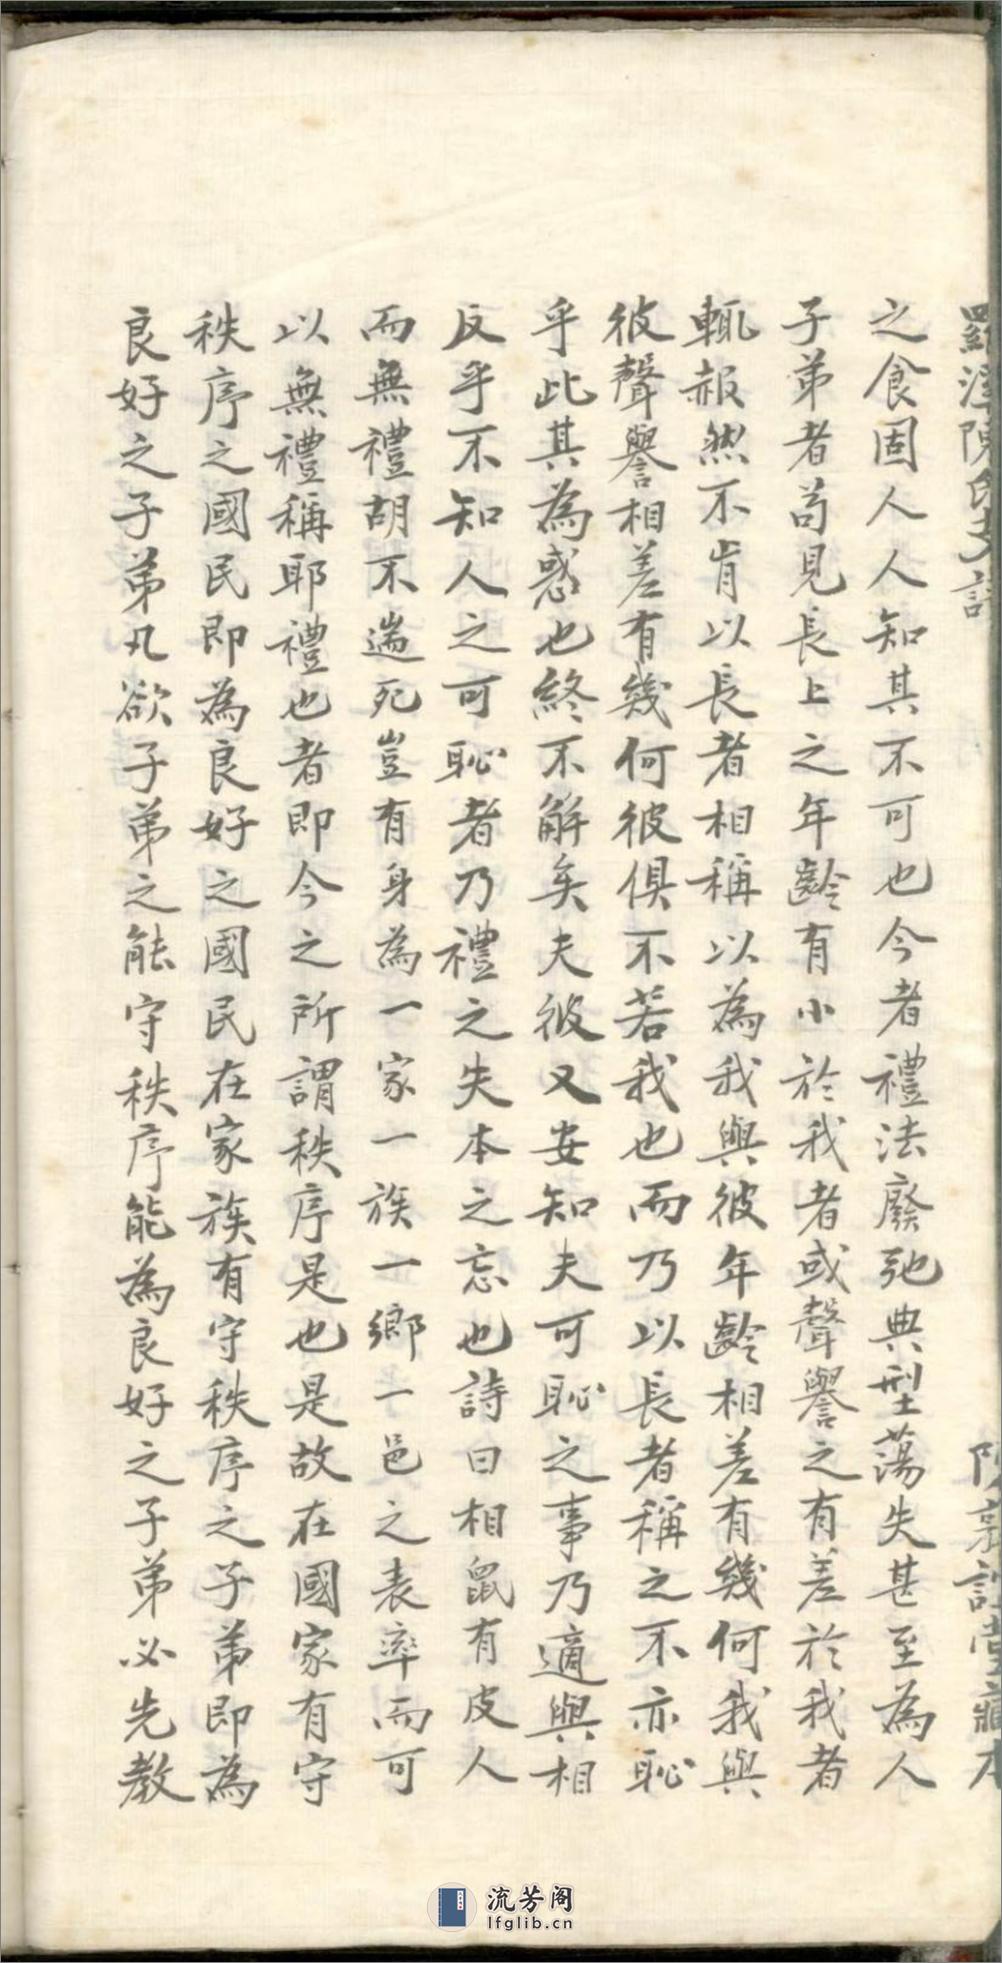 羅溪陳氏支譜
陳 堂藏本
之食固人人知其不可也今者禮法廢弛典型蕩失甚至為人
子弟者苟見長上之年齡有小於我者或聲譽之有差於我者
輒赧然不肯以長者相稱以為我與彼年齡相差有幾何我與
彼聲譽相差有幾何彼俱不若我也而乃以長者稱之不亦恥
乎此其為惑也終不解矣夫彼又安知夫可恥之事乃適與相
反乎不知人之可恥者乃禮之失本之忘也詩曰相鼠有皮人
而無禮胡不遄死豈有身為一家一族一鄉一邑之表率而可
以無禮稱耶禮也者即今之所謂秩序是也是故在國家有守
秩序之國民即為良好之國民在家族有守秩序之子弟即為
良好之子弟凡欲子弟之能守秩序能為良好之子弟必先教
流芳阁
lfglib.cn